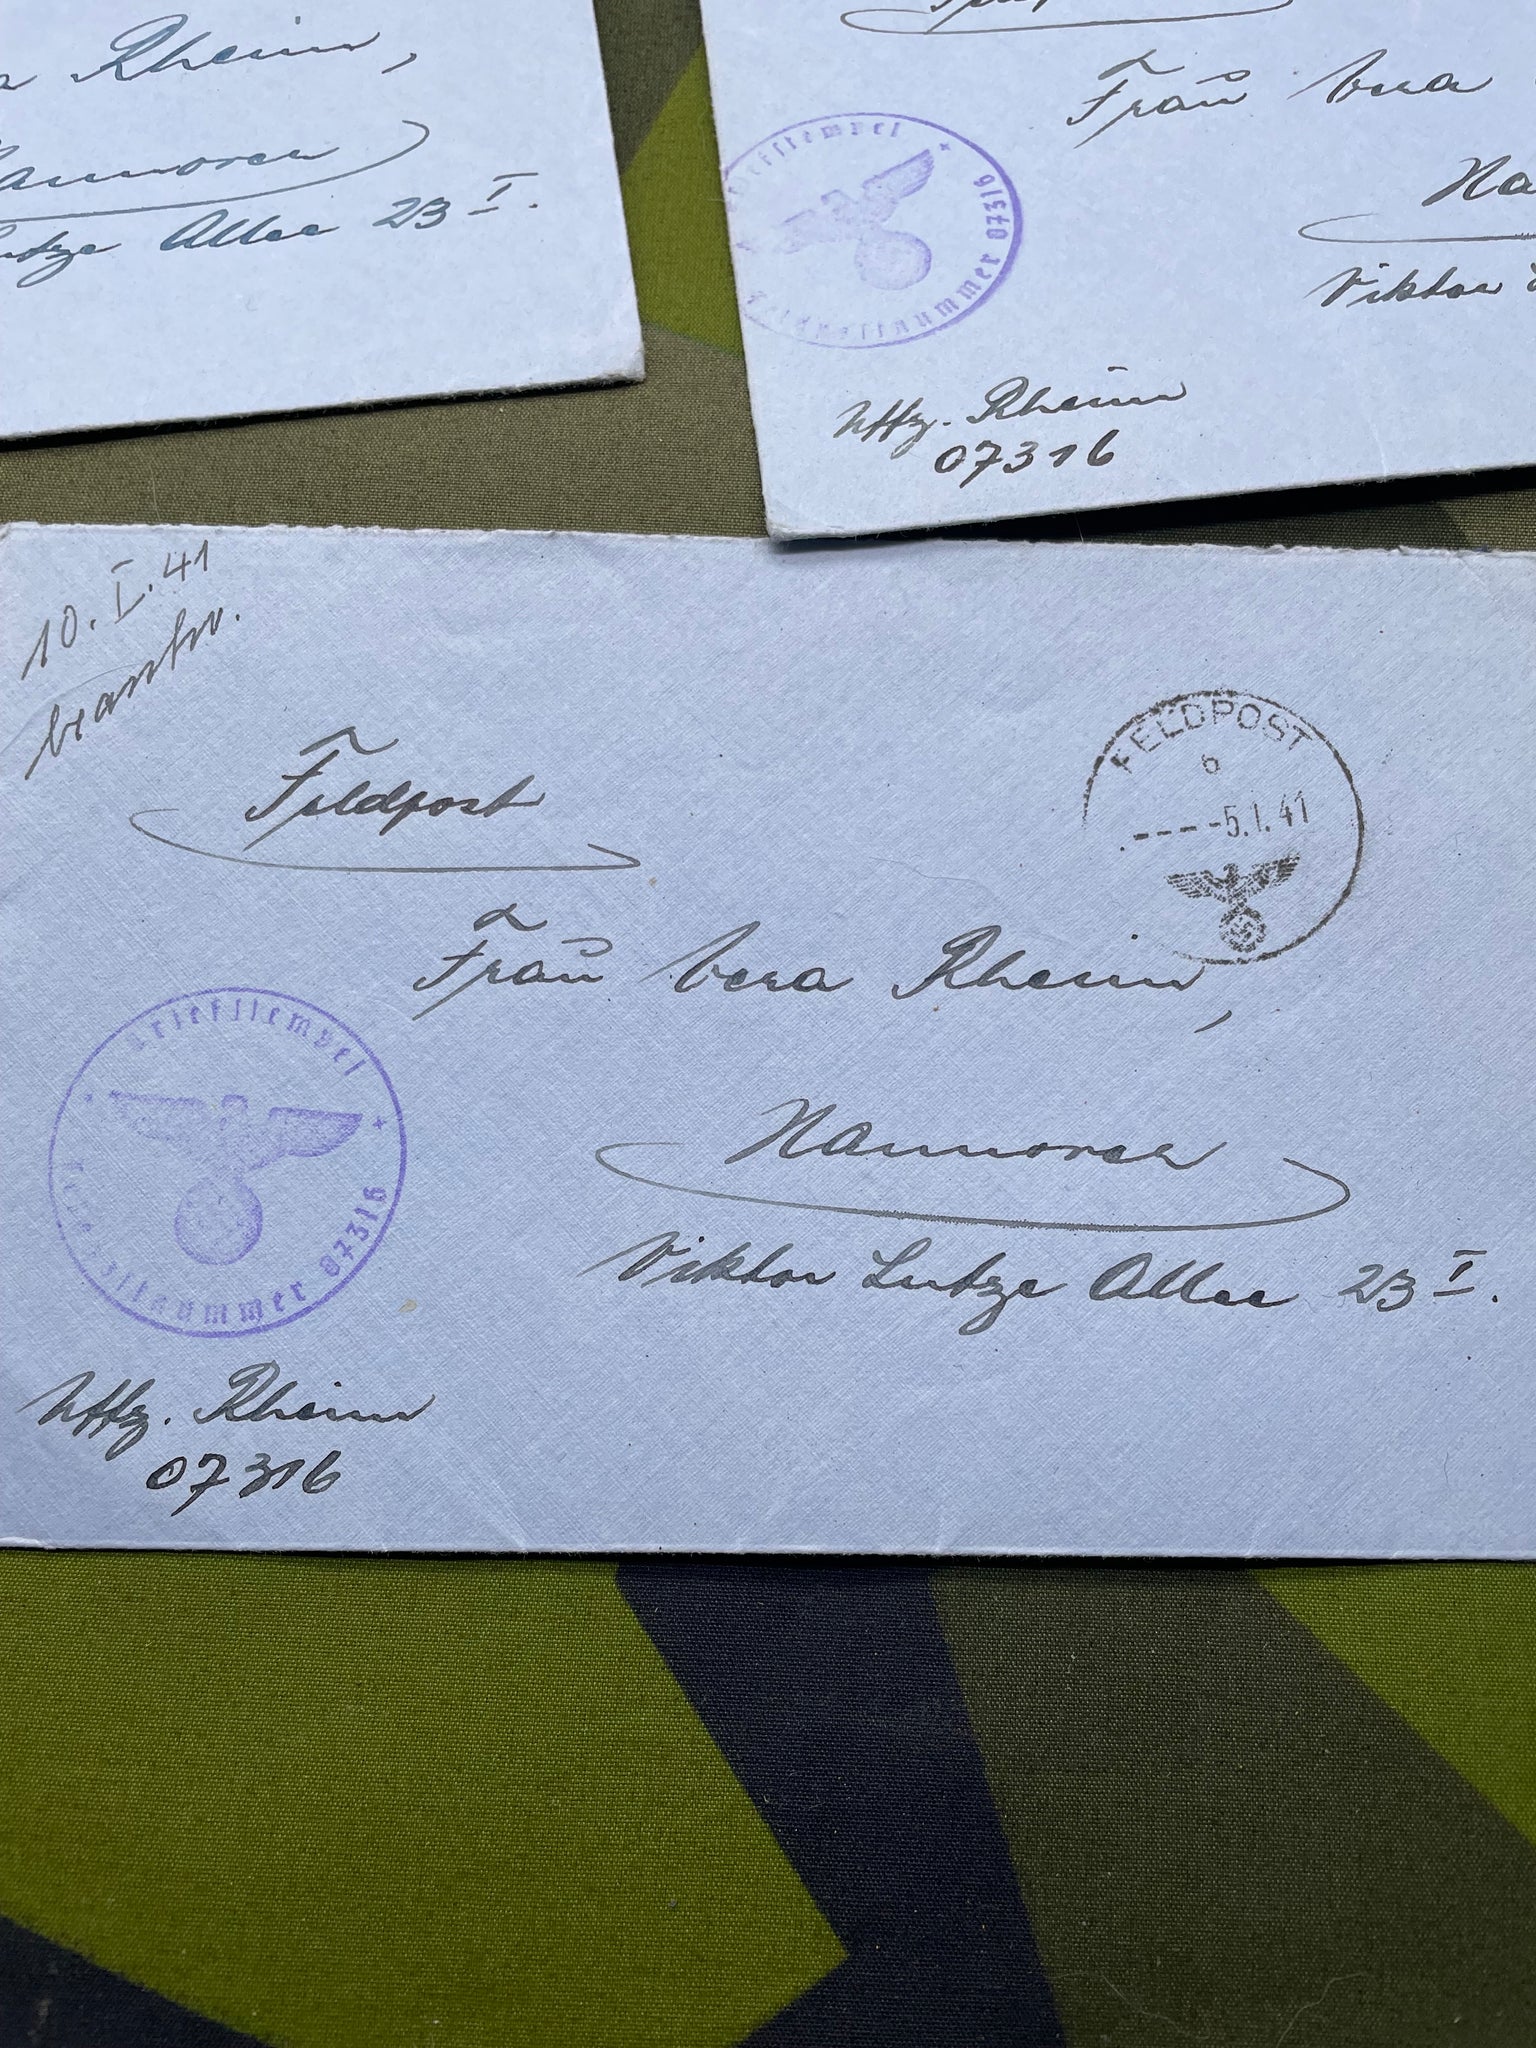 Rheim,
Hannover
Lutze Allee 23 I.
Frau Vera
Ha
Viktor L
Briefstempel
Feldpostnummer 07316
Uffz. Rheim
07316
10.I.41
beantw.
Feldpost
FELDPOST
b
----5.1.41
Frau Vera Rheim,
Hannover
Viktor Lutze Allee 23 I.
Briefstempel
Feldpostnummer 07316
Uffz. Rheim
07316